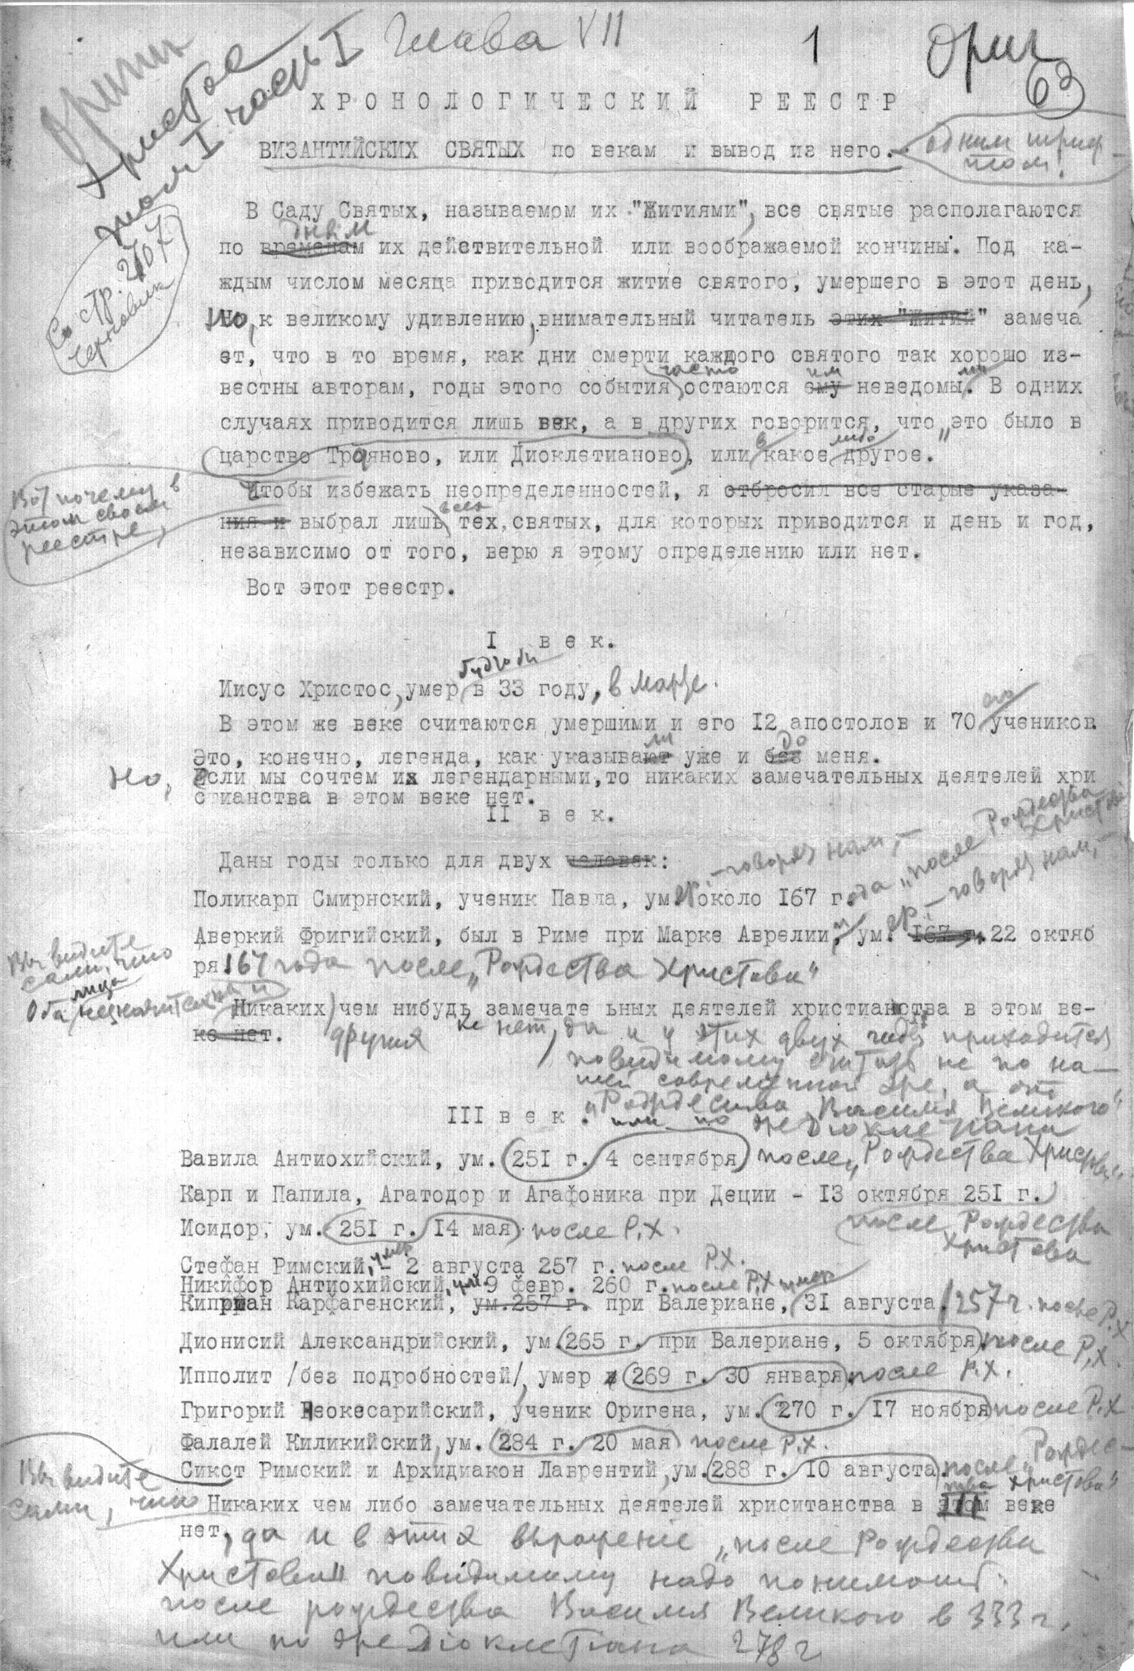 Глава VII
1
Ориг
63
Христос
том I часть I
ХРОНОЛОГИЧЕСКИЙ РЕЕСТР
ВИЗАНТИЙСКИХ СВЯТЫХ по векам и вывод из него.
одним шриф-
том!
В Саду Святых, называемом их "Житиями", все святые располагаются
дням
по временам их действительной или воображаемой кончины. Под ка-
ждым числом месяца приводится житие святого, умершего в этот день,
Со стр. 2107
черновика
Но, к великому удивлению, внимательный читатель этих "Житий" замеча
ет, что в то время, как дни смерти каждого святого так хорошо из-
часто им ми
вестны авторам, годы этого события остаются ему неведомы. В одних
случаях приводится лишь век, а в других говорится, что "это было в
в либо
царство Трояново, или Диоклетианово, или какое другое."
Вот почему в
этом своем
реестре,
Чтобы избежать неопределенностей, я отбросил все старые указа-
всех
ния и выбрал лишь тех, святых, для которых приводится и день и год,
независимо от того, верю я этому определению или нет.
Вот этот реестр.
I век.
будто бы
Иисус Христос, умер в 33 году, в марте.
его
В этом же веке считаются умершими и его 12 апостолов и 70 учеников
ли до
Это, конечно, легенда, как указывают уже и без меня.
Но, Если мы сочтем их легендарными, то никаких замечательных деятелей хри
стианства в этом веке нет.
II век.
Даны годы только для двух человек:
- говорят нам, -
Поликарп Смирнский, ученик Павла, умер около 167 года "после Рождества
Христова
- говорят нам, -
Аверкий Фригийский, был в Риме при Марке Аврелии, и ум. 167 г. 22 октяб
ря 167 года после "Рождества Христова"
Вы видите
сами, что
оба лица незначительны и
Никаких чем нибудь замечате ьных деятелей христианства в этом ве-
ке нет. других ке нет, да и у этих двух годы приходится
повидимому считать не по на-
шей современной эре, а от
"Рождества Василия Великого"
или по эре Диоклетиана
III век.
Вавила Антиохийский, ум. 251 г. 4 сентября после "Рождества Христова"
Карп и Папила, Агатодор и Агафоника при Деции - 13 октября 251 г.
после Рождества
Христова
Исидор, ум. 251 г. 14 мая после Р.Х.
Стефан Римский, умер - 2 августа 257 г. после Р.Х.
Никифор Антиохийский, ум. 9 февр. 260 г. после Р.Х.
умер
Киприан Карфагенский, ум. 257 г. при Валериане, 31 августа 257 г. после Р.Х
Дионисий Александрийский, ум. 265 г. при Валериане, 5 октября после Р.Х
Ипполит /без подробностей/, умер в 269 г. 30 января после Р.Х.
Григорий Неокесарийский, ученик Оригена, ум. 270 г. 17 ноября после Р.Х
Фалалей Киликийский, ум. 284 г. 20 мая после Р.Х.
Сикст Римский и Архидиакон Лаврентий, ум. 288 г. 10 августа после "Рождес-
тва Христова"
Вы видите
сами, что
Никаких чем либо замечательных деятелей хриситанства в этом III веке
нет, да и в этих выражение "после Рождества
Христова" повидимому надо понимать
после рождества Василия Великого в 333 г.
или по эре Диоклетиана 278 г